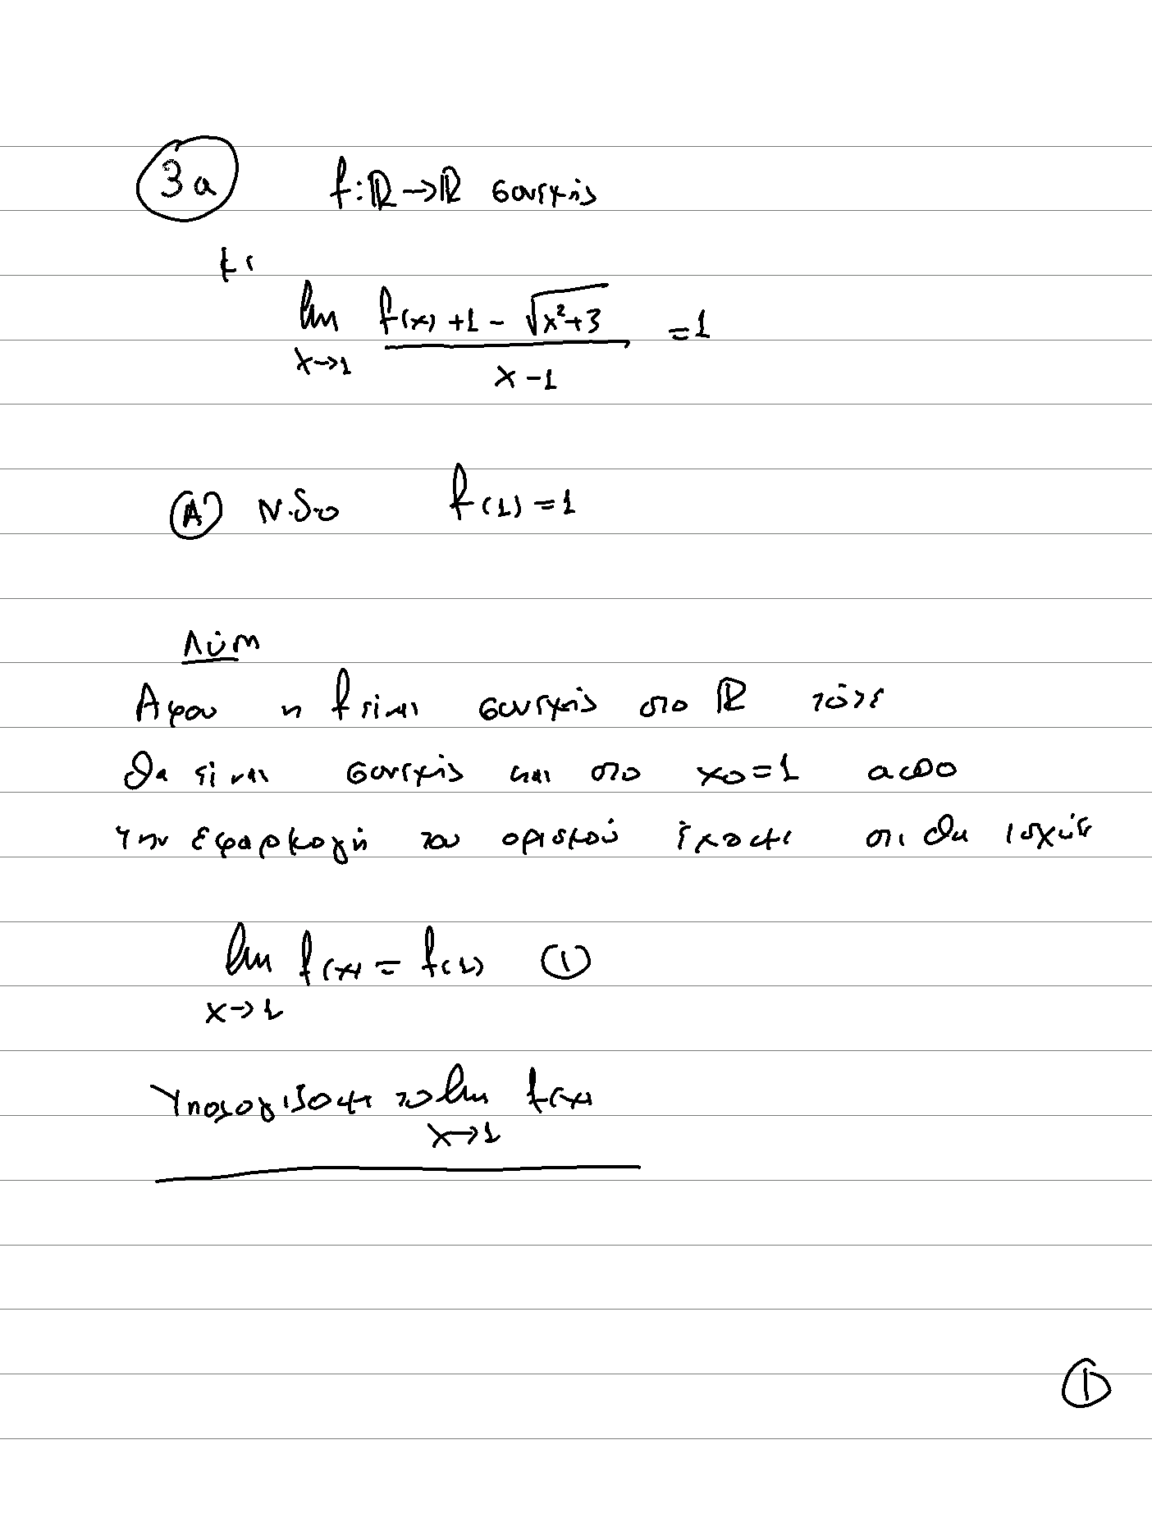 3α f:ℝ→ℝ συνεχής
με
lim f(x)+1-√x²+3 =1
x→1 x-1
Α) Ν.δ.ο f(1)=1
Λύση
Αφου η f είναι συνεχής στο ℝ τότε
θα είναι συνεχής και στο x0=1 απο
την εφαρμογή του ορισμού έχουμε οτι θα ισχύει
lim f(x) = f(1) ①
x→1
Υπολογίζουμε το lim f(x)
x→1
①